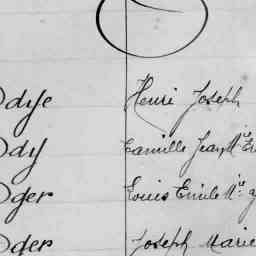 Odye Henri Joseph
Ody Camille Jean Mie
Oger Louis Emile Mie
Oger Joseph Marie